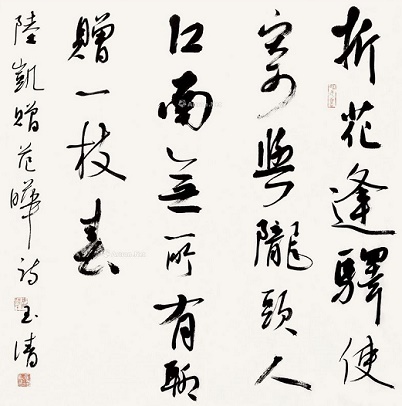 折花逢驛使
寄與隴頭人
江南無所有聊
贈一枝春
陸凱贈范曄詩 玉清